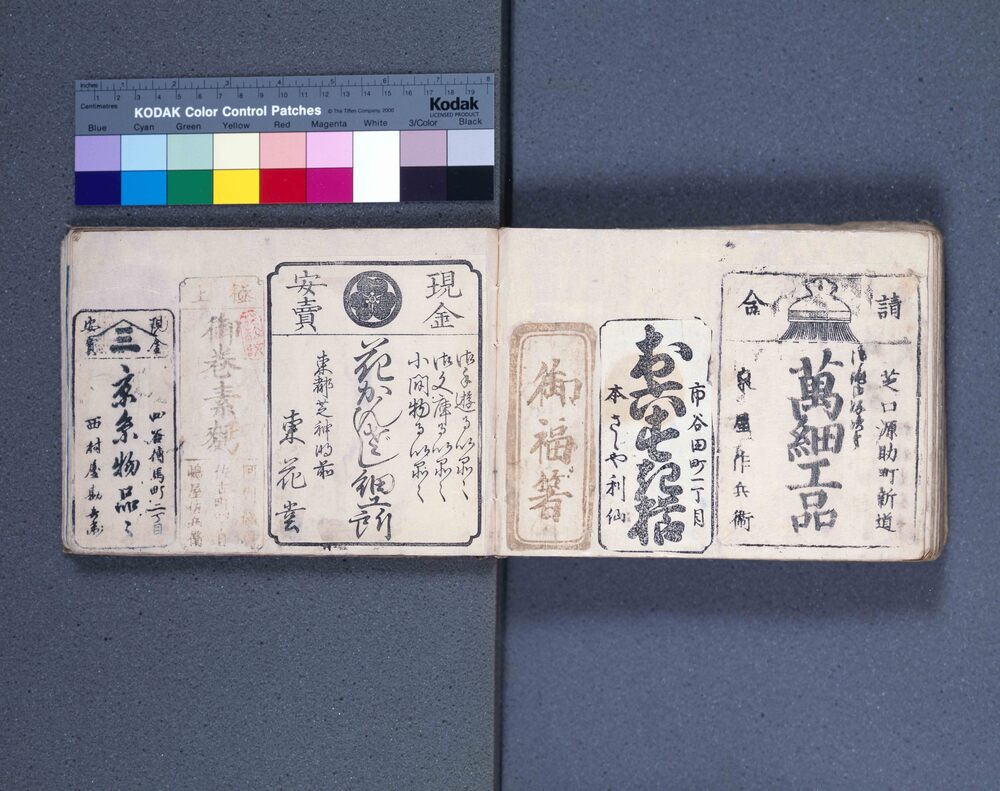 Inches 1 2 3 4 5 6 7 8
Centimetres 1 2 3 4 5 6 7 8 9 10 11 12 13 14 15 16 17 18 19
KODAK Color Control Patches © The Tiffen Company, 2000 Kodak
LICENSED PRODUCT
Blue Cyan Green Yellow Red Magenta White 3/Color Black
請合
芝口源助町新道
萬細工品
泉屋作兵衛
市谷田町一丁目
本さしや利仙
御福箸
現金
安賣
御手遊るい品〻
御文庫るい品〻
小間物るい品〻
花かんざし細工所
東都芝神明前
東花堂
極上
御巻素麺
現金
安賣
三
四谷傳馬町二丁目
京糸物品〻
西村屋勘兵衛